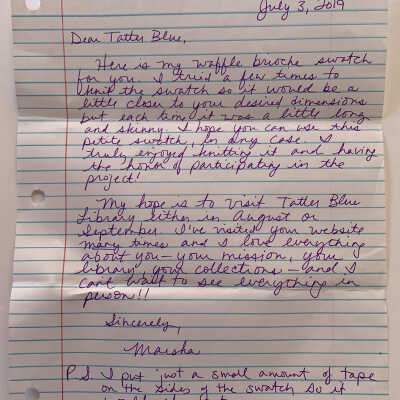 July 3, 2019
Dear Tatter Blue,
Here is my waffle brioche swatch
for you. I tried a few times to
knit the swatch so it would be a
little closer to your desired dimensions
but each time it was a little long
and skinny. I hope you can use this
petite swatch, in any case I
truly enjoyed knitting it and having
the honor of participating in the
project!
My hope is to visit Tatter Blue
Library either in August or
September. I've visited your website
many times and I love everything
about you—your mission, your
library, your collections—and I
can't wait to see everything in
person!!
Sincerely,
Marsha
P.S. I put just a small amount of tape
on the sides of the swatch so it